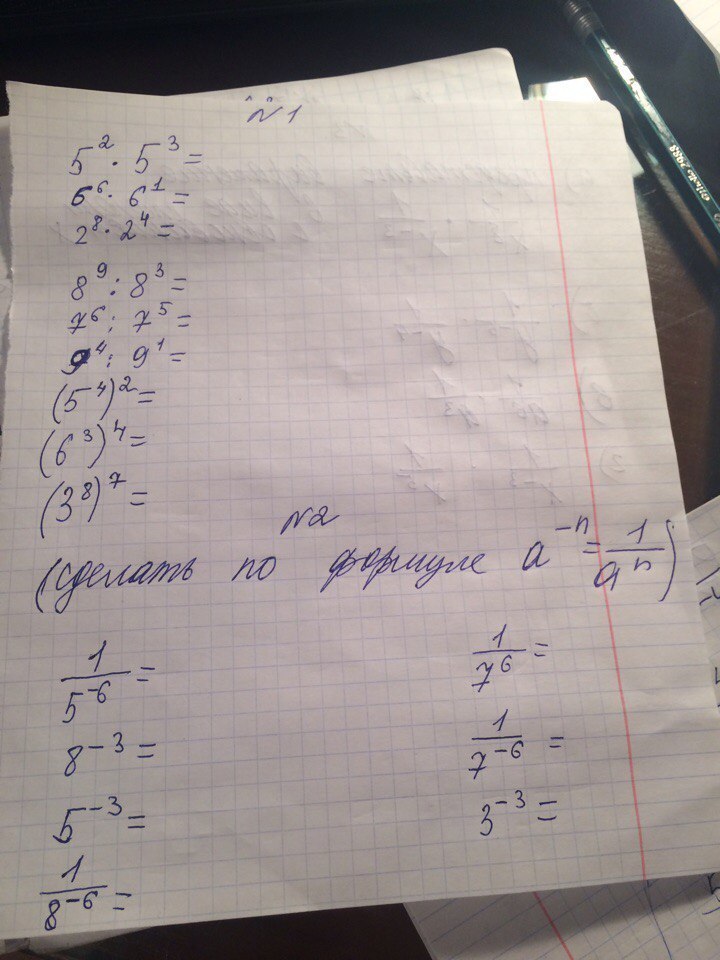 №1
5² · 5³ =
6⁶ · 6¹ =
2⁸ · 2⁴ =
8⁹ : 8³ =
7⁶ : 7⁵ =
9⁴ : 9¹ =
(5⁴)² =
(6³)⁴ =
(3⁸)⁷ =
№2
(сделать по формуле a⁻ⁿ = 1/aⁿ)
1/5⁻⁶ =
1/7⁶ =
8⁻³ =
1/7⁻⁶ =
5⁻³ =
3⁻³ =
1/8⁻⁶ =